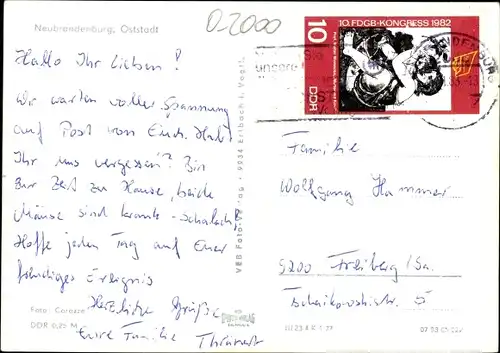 Neubrandenburg, Oststadt
D 2000
Hallo Ihr Lieben!
Wir warten voller Spannung
auf Post von Euch. Habt
Ihr uns vergessen? Bin
zur Zeit zu Hause, beide
Mäuse sind krank - Scharlach!
Hoffe jeden Tag auf Euer
freudiges Ereignis
Herzliche Grüße
Eure Familie
Foto: Corazza
DDR 0,25 M
VEB Foto-Verlag · 9934 Erlbach i. Vogtl.
10. FDGB-KONGRESS 1982
10
DDR
Familie
Wolfgang Hammer
9200 Freiberg/Sa.
Tschaikowskistr. 5